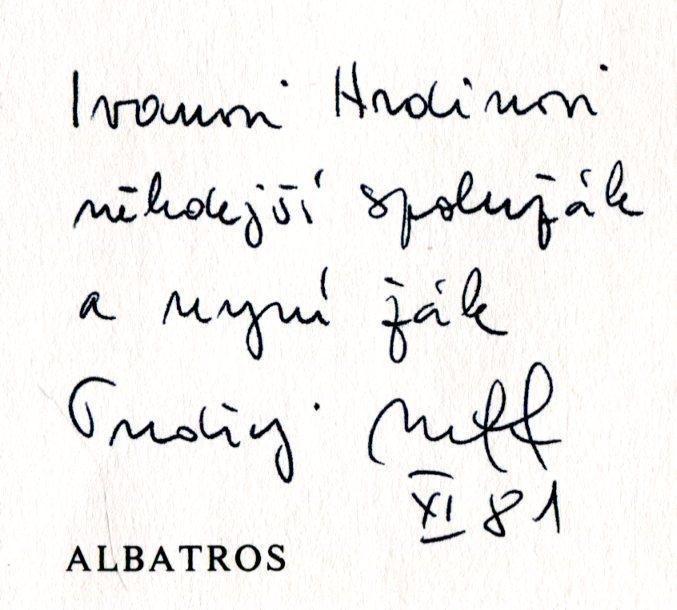 Ivanovi Hrdinovi
někdejší spolužák
a nyní žák
Ondřej Neff
XI 81
ALBATROS